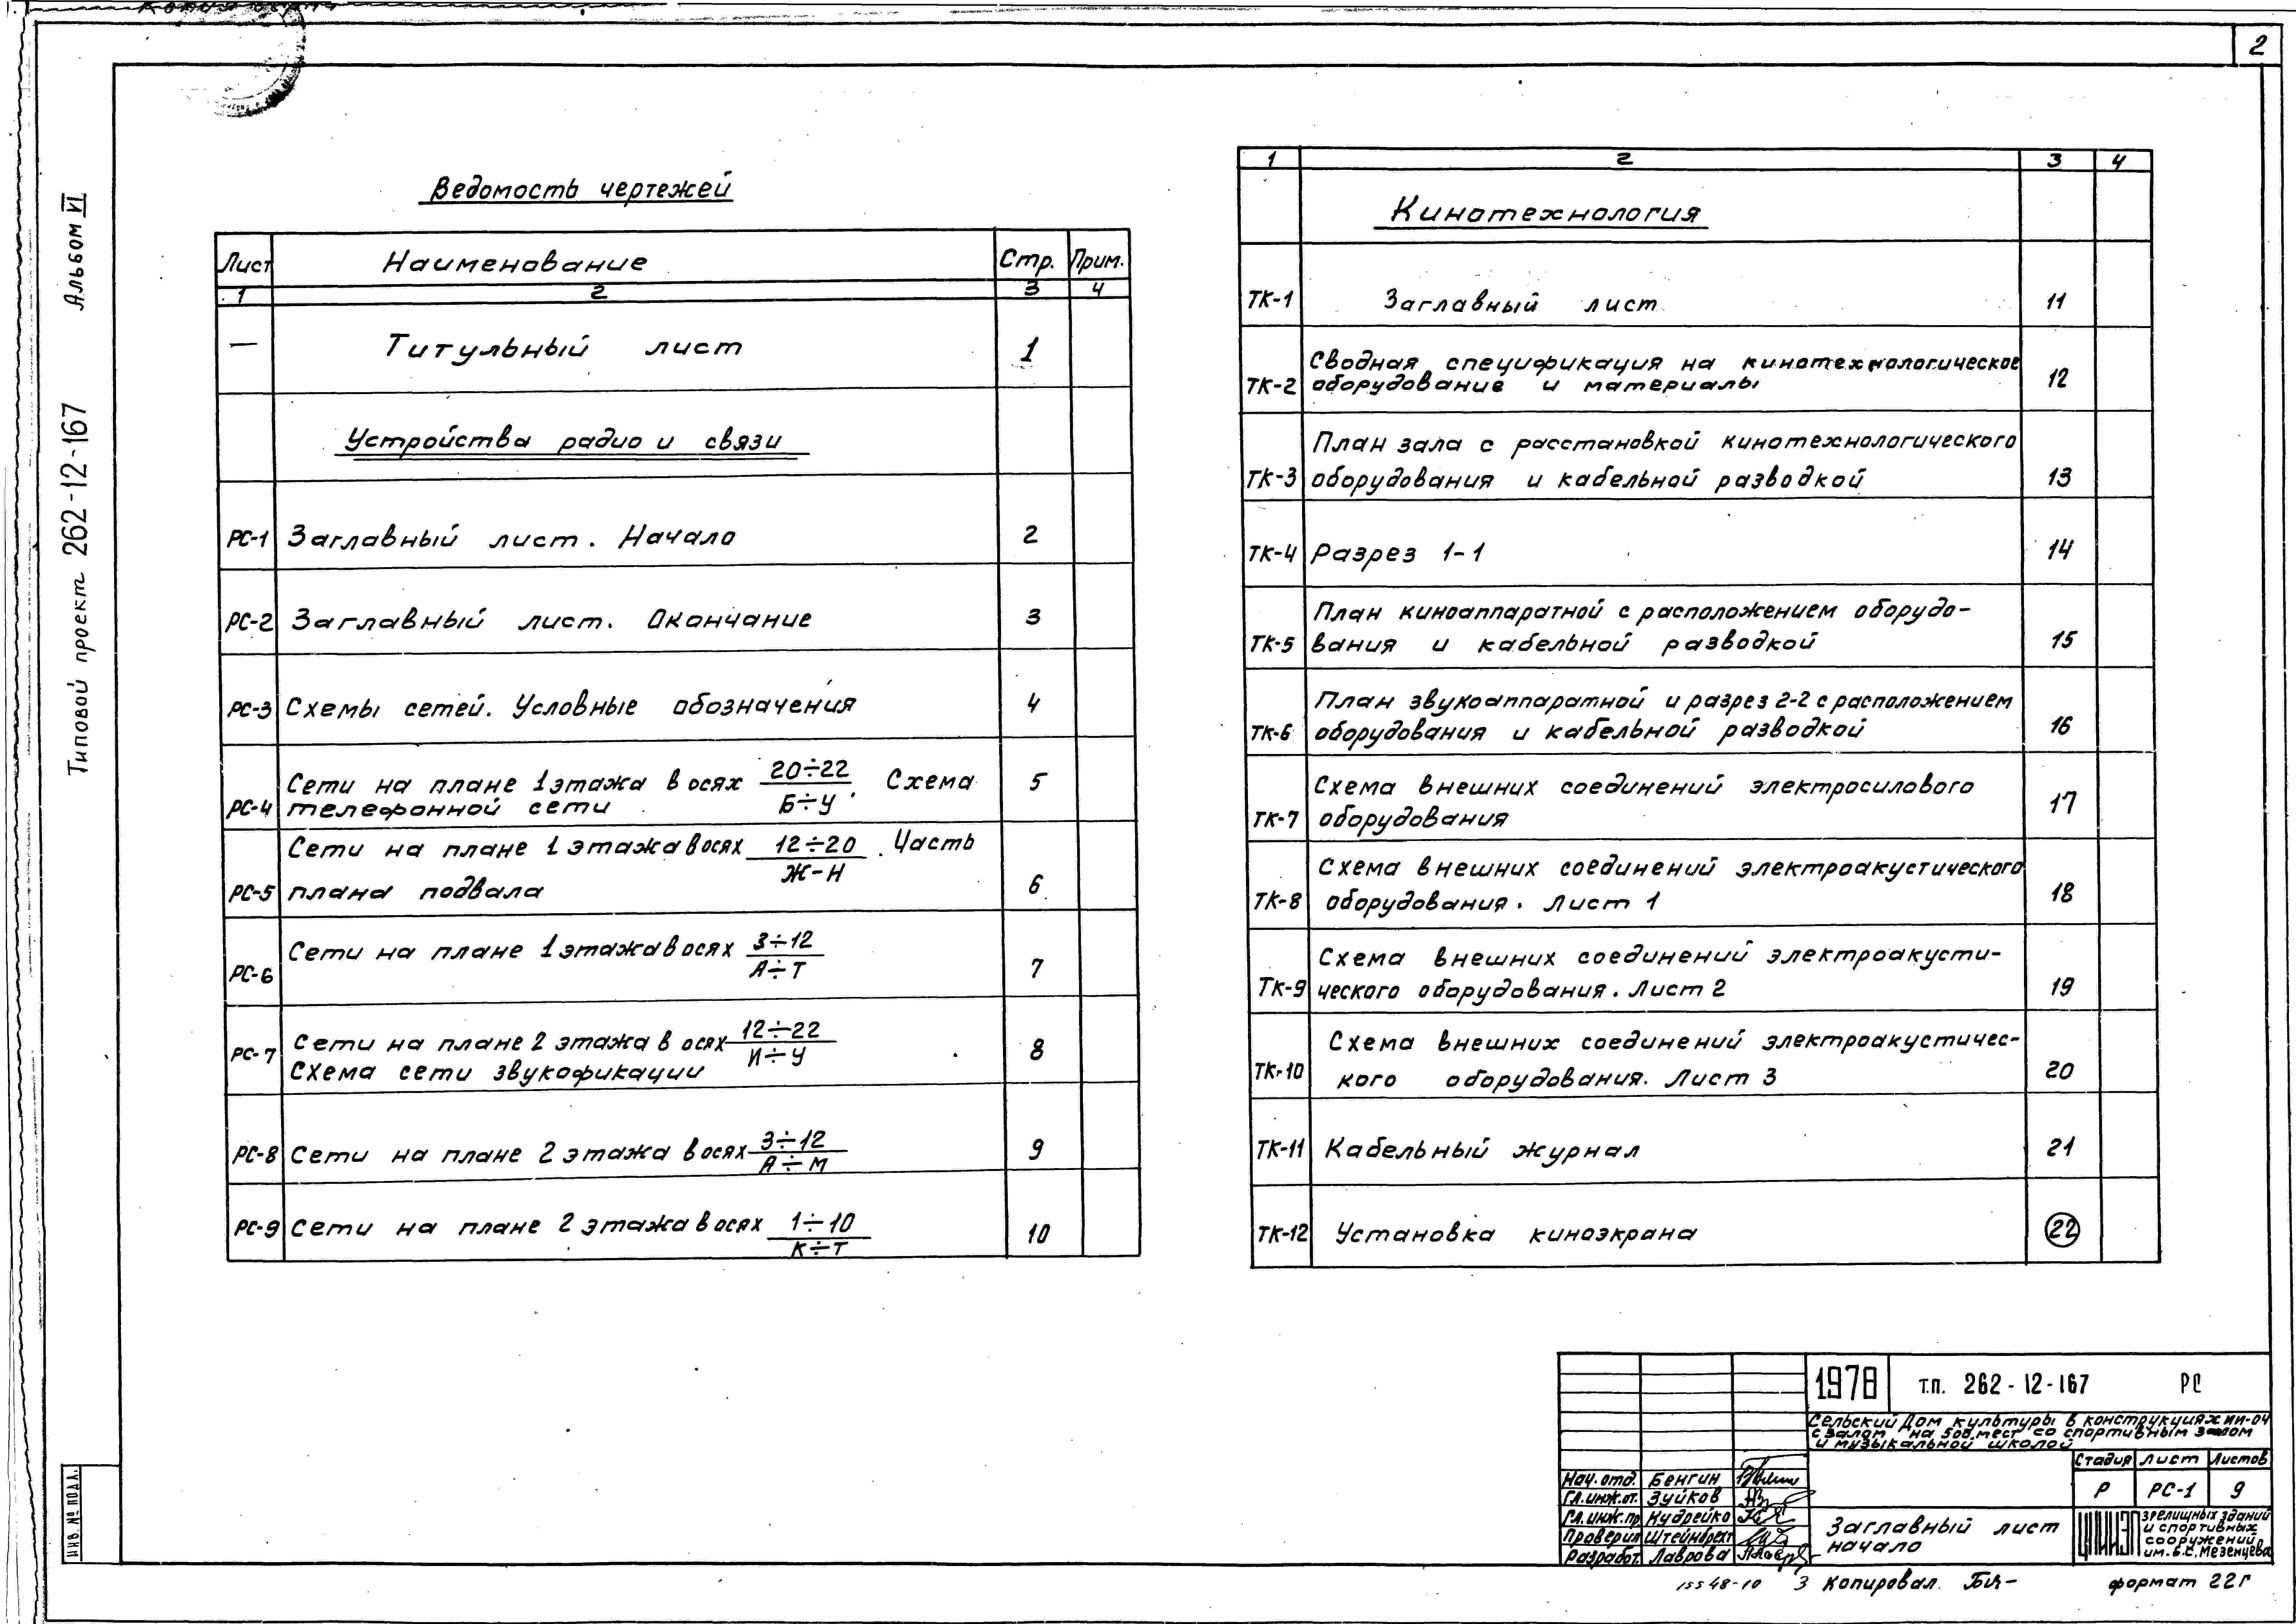 2
Альбом VI
Типовой проект 262-12-167
Инв. № подл.
Ведомость чертежей
Лист Наименование Стр. Прим.
1 2 3 4
— Титульный лист 1
Устройства радио и связи
РС-1 Заглавный лист. Начало 2
РС-2 Заглавный лист. Окончание 3
РС-3 Схемы сетей. Условные обозначения 4
Сети на плане 1 этажа в осях 20÷22 / Б÷У. Схема 5
РС-4 телефонной сети
Сети на плане 1 этажа в осях 12÷20 / Ж-Н. Часть
РС-5 плана подвала 6
РС-6 Сети на плане 1 этажа в осях 3÷12 / А÷Т 7
РС-7 Сети на плане 2 этажа в осях 12÷22 / И÷У 8
Схема сети звукофикации
РС-8 Сети на плане 2 этажа в осях 3÷12 / А÷М 9
РС-9 Сети на плане 2 этажа в осях 1÷10 / К÷Т 10
1 2 3 4
Кинотехнология
ТК-1 Заглавный лист 11
Сводная спецификация на кинотехнологическое
ТК-2 оборудование и материалы 12
План зала с расстановкой кинотехнологического
ТК-3 оборудования и кабельной разводкой 13
ТК-4 Разрез 1-1 14
План киноаппаратной с расположением оборудо-
ТК-5 вания и кабельной разводкой 15
План звукоаппаратной и разрез 2-2 с расположением
ТК-6 оборудования и кабельной разводкой 16
Схема внешних соединений электросилового
ТК-7 оборудования 17
Схема внешних соединений электроакустического
ТК-8 оборудования. Лист 1 18
Схема внешних соединений электроакусти-
ТК-9 ческого оборудования. Лист 2 19
Схема внешних соединений электроакустичес-
ТК-10 кого оборудования. Лист 3 20
ТК-11 Кабельный журнал 21
ТК-12 Установка киноэкрана 22
1978 т.п. 262-12-167 РС
Сельский Дом культуры в конструкциях ИИ-04
с залом на 500 мест со спортивным залом
и музыкальной школой
Стадия Лист Листов
Р РС-1 9
Нач. отд. Бенгин
Гл. инж. от. Зуйков
Гл. инж. пр Кудрейко
Проверил Штейнбрехт
Разработ. Лаврова
Заглавный лист
начало
ЦНИИЭП зрелищных зданий
и спортивных
сооружений
им. Б.С. Мезенцева
15548-10 3 Копировал формат 22г